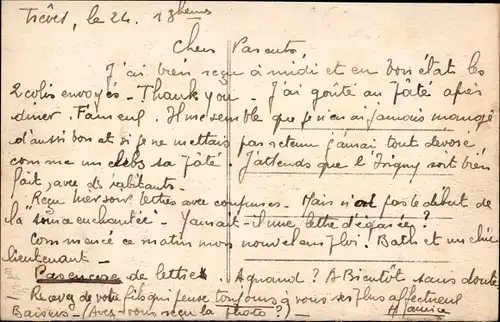 Trèves, le 24. 18 heures
Chers Parents,
J'ai bien reçu à midi et en bon état les
2 colis envoyés - Thank you - J'ai goûté au pâté après
dîner. Fameux. Il me semble que je n'en ai jamais mangé
d'aussi bon et si je ne m'étais pas retenu j'aurai tout dévoré
comme un sa pâté. J'attends que l' soit bien
fait, avec des
Reçu hier soir lettres avec coupures. Mais n'est pas le début de
la "enchantée" - Y aurait-il une lettre d'égarée ?
Commencé ce matin mon nouvel emploi. Bath et un chic
lieutenant -
Pas encore de lettres. A quand ? A Bientôt sans doute
- Recevez de votre fils qui pense toujours à vous ses plus affectueux
Baisers - (Avez-vous reçu la photo ?) Maurice